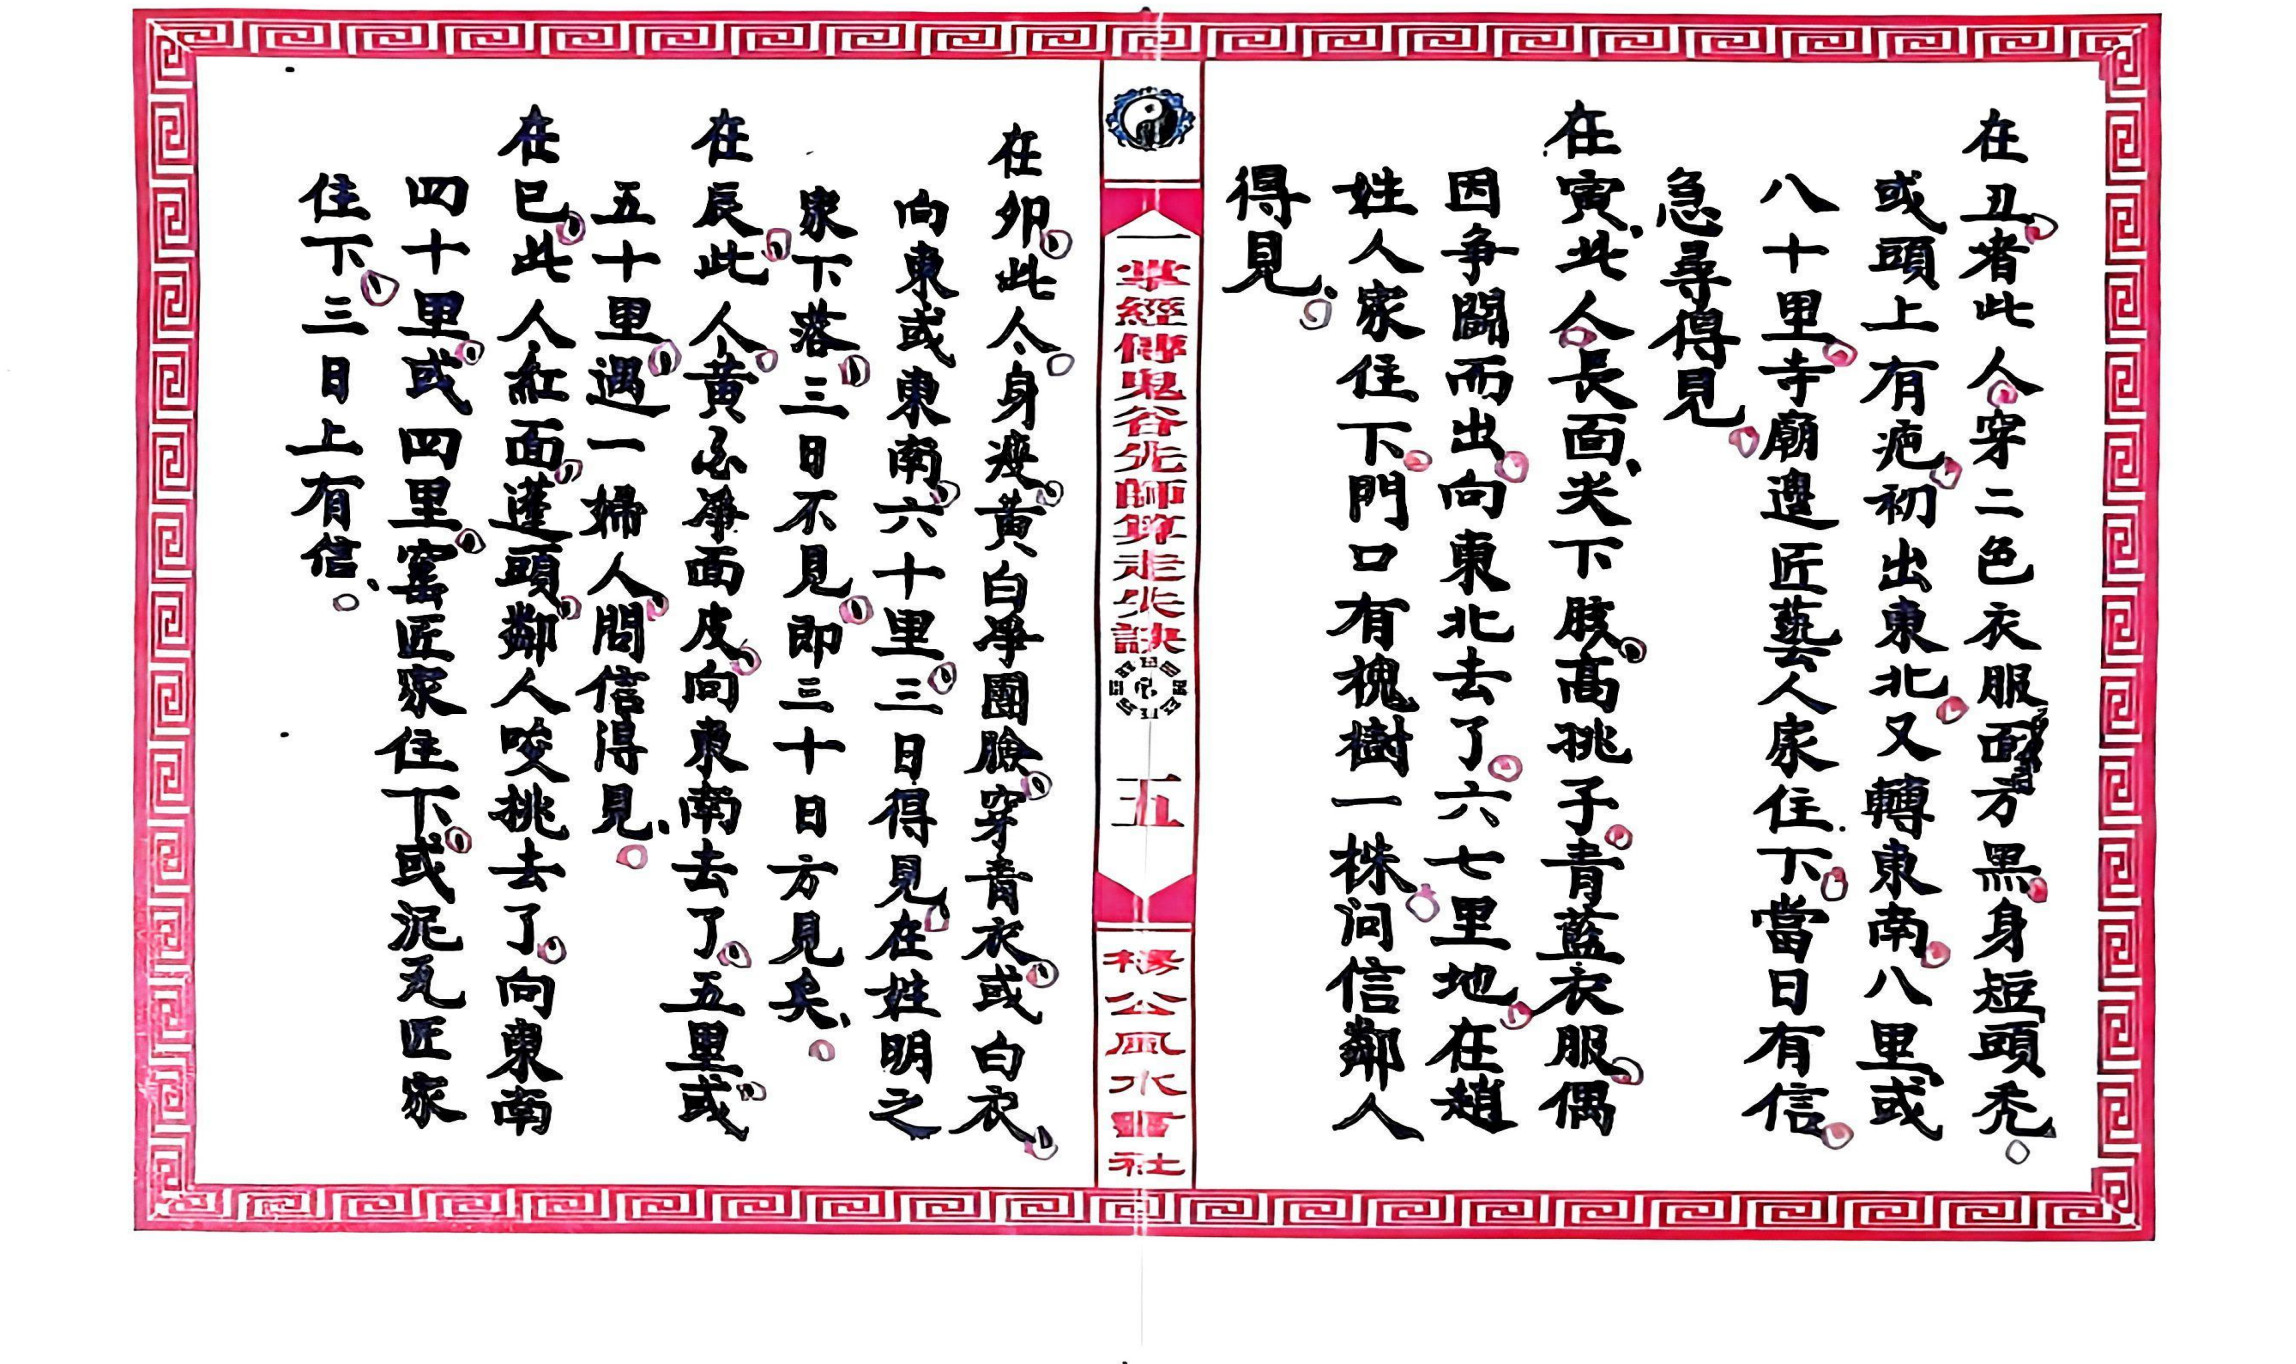 在丑者此人穿二色衣服面方黑身短頭禿
或頭上有疤初出東北又轉東南八里或
八十里寺廟邊匠藝人家住下當日有信
急尋得見
在寅此人長面尖下胲高挑子青藍衣服偶
因爭鬪而出向東北去了六七里地在趙
姓人家住下門口有槐樹一株问信鄰人
得見
一掌經傳鬼谷先師算走失訣
一五
楊公風水書社
在卯此人身瘦黃白淨團臉穿青衣或白衣
向東或東南六十里三日得見在姓明之
家下落三日不見即三十日方見矣
在辰此人黃必淨面皮向東南去了五里或
五十里遇一婦人問信得見
在巳此人紅面蓬頭鄰人咬挑去了向東南
四十里或四里窰匠家住下或泥瓦匠家
住下三日上有信